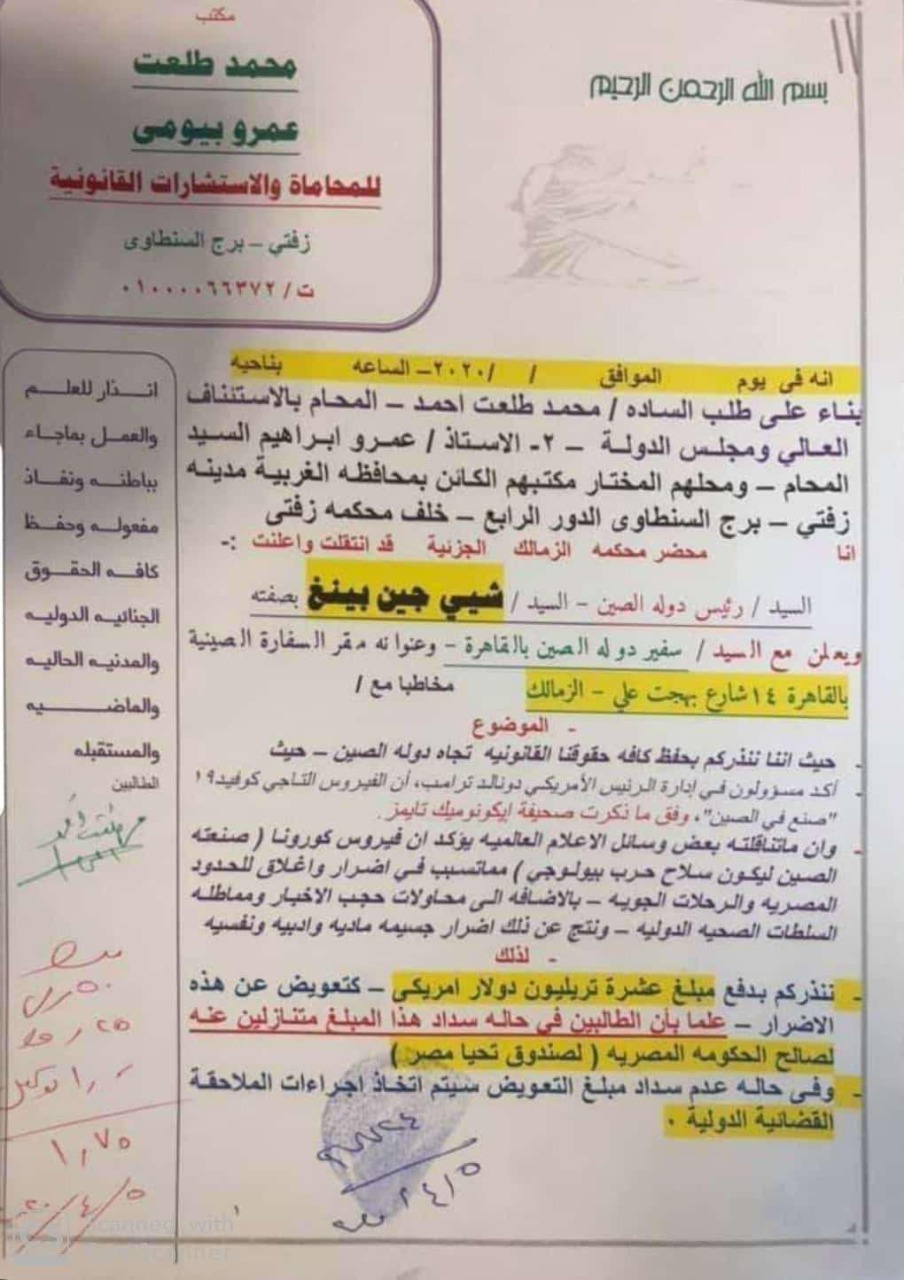 مكتب
محمد طلعت
عمرو بيومى
للمحاماة والاستشارات القانونية
زفتي – برج السنطاوى
ت / ٠١٠٠٠٠٦٦٣٧٢
بسم الله الرحمن الرحيم
انه فى يوم الموافق / /٢٠٢٠– الساعه بناحيه
بناء على طلب الساده / محمد طلعت احمد – المحام بالاستئناف
العالي ومجلس الدولة – ٢- الاستاذ / عمرو ابراهيم السيد
المحام – ومحلهم المختار مكتبهم الكائن بمحافظه الغربية مدينه
زفتي – برج السنطاوى الدور الرابع – خلف محكمه زفتى
انا محضر محكمه الزمالك الجزئية قد انتقلت واعلنت :-
السيد / رئيس دوله الصين – السيد / شيي جين بينغ بصفته
ويعلن مع السيد / سفير دوله الصين بالقاهرة – وعنوانه مقر السفارة الصينية
بالقاهرة ١٤ شارع بهجت علي – الزمالك مخاطبا مع /
- الموضوع
- حيث اننا ننذركم بحفظ كافه حقوقنا القانونيه تجاه دوله الصين – حيث
- أكد مسؤولون في إدارة الرئيس الأمريكي دونالد ترامب، أن الفيروس التاجي كوفيد١٩
"صنع في الصين"، وفق ما ذكرت صحيفة إيكونوميك تايمز.
- وان ماتناقلته بعض وسائل الاعلام العالميه يؤكد ان فيروس كورونا ( صنعته
الصين ليكون سلاح حرب بيولوجي ) مماتسبب في اضرار واغلاق للحدود
المصريه والرحلات الجويه – بالاضافه الى محاولات حجب الاخبار ومماطله
السلطات الصحيه الدوليه – ونتج عن ذلك اضرار جسيمه ماديه وادبيه ونفسيه
- لذلك
- ننذركم بدفع مبلغ عشرة تريليون دولار امريكى – كتعويض عن هذه
الاضرار – علما بأن الطالبين في حاله سداد هذا المبلغ متنازلين عنه
لصالح الحكومه المصريه ( لصندوق تحيا مصر )
- وفى حاله عدم سداد مبلغ التعويض سيتم اتخاذ اجراءات الملاحقة
القضائية الدولية .
انذار للعلم
والعمل بماجاء
بباطنه ونفاذ
مفعوله وحفظ
كافه الحقوق
الجنائيه الدوليه
والمدنيه الحاليه
والماضيه
والمستقبله
الطالبين
١,٧٥
٥/٤/٢٠
Scanned with